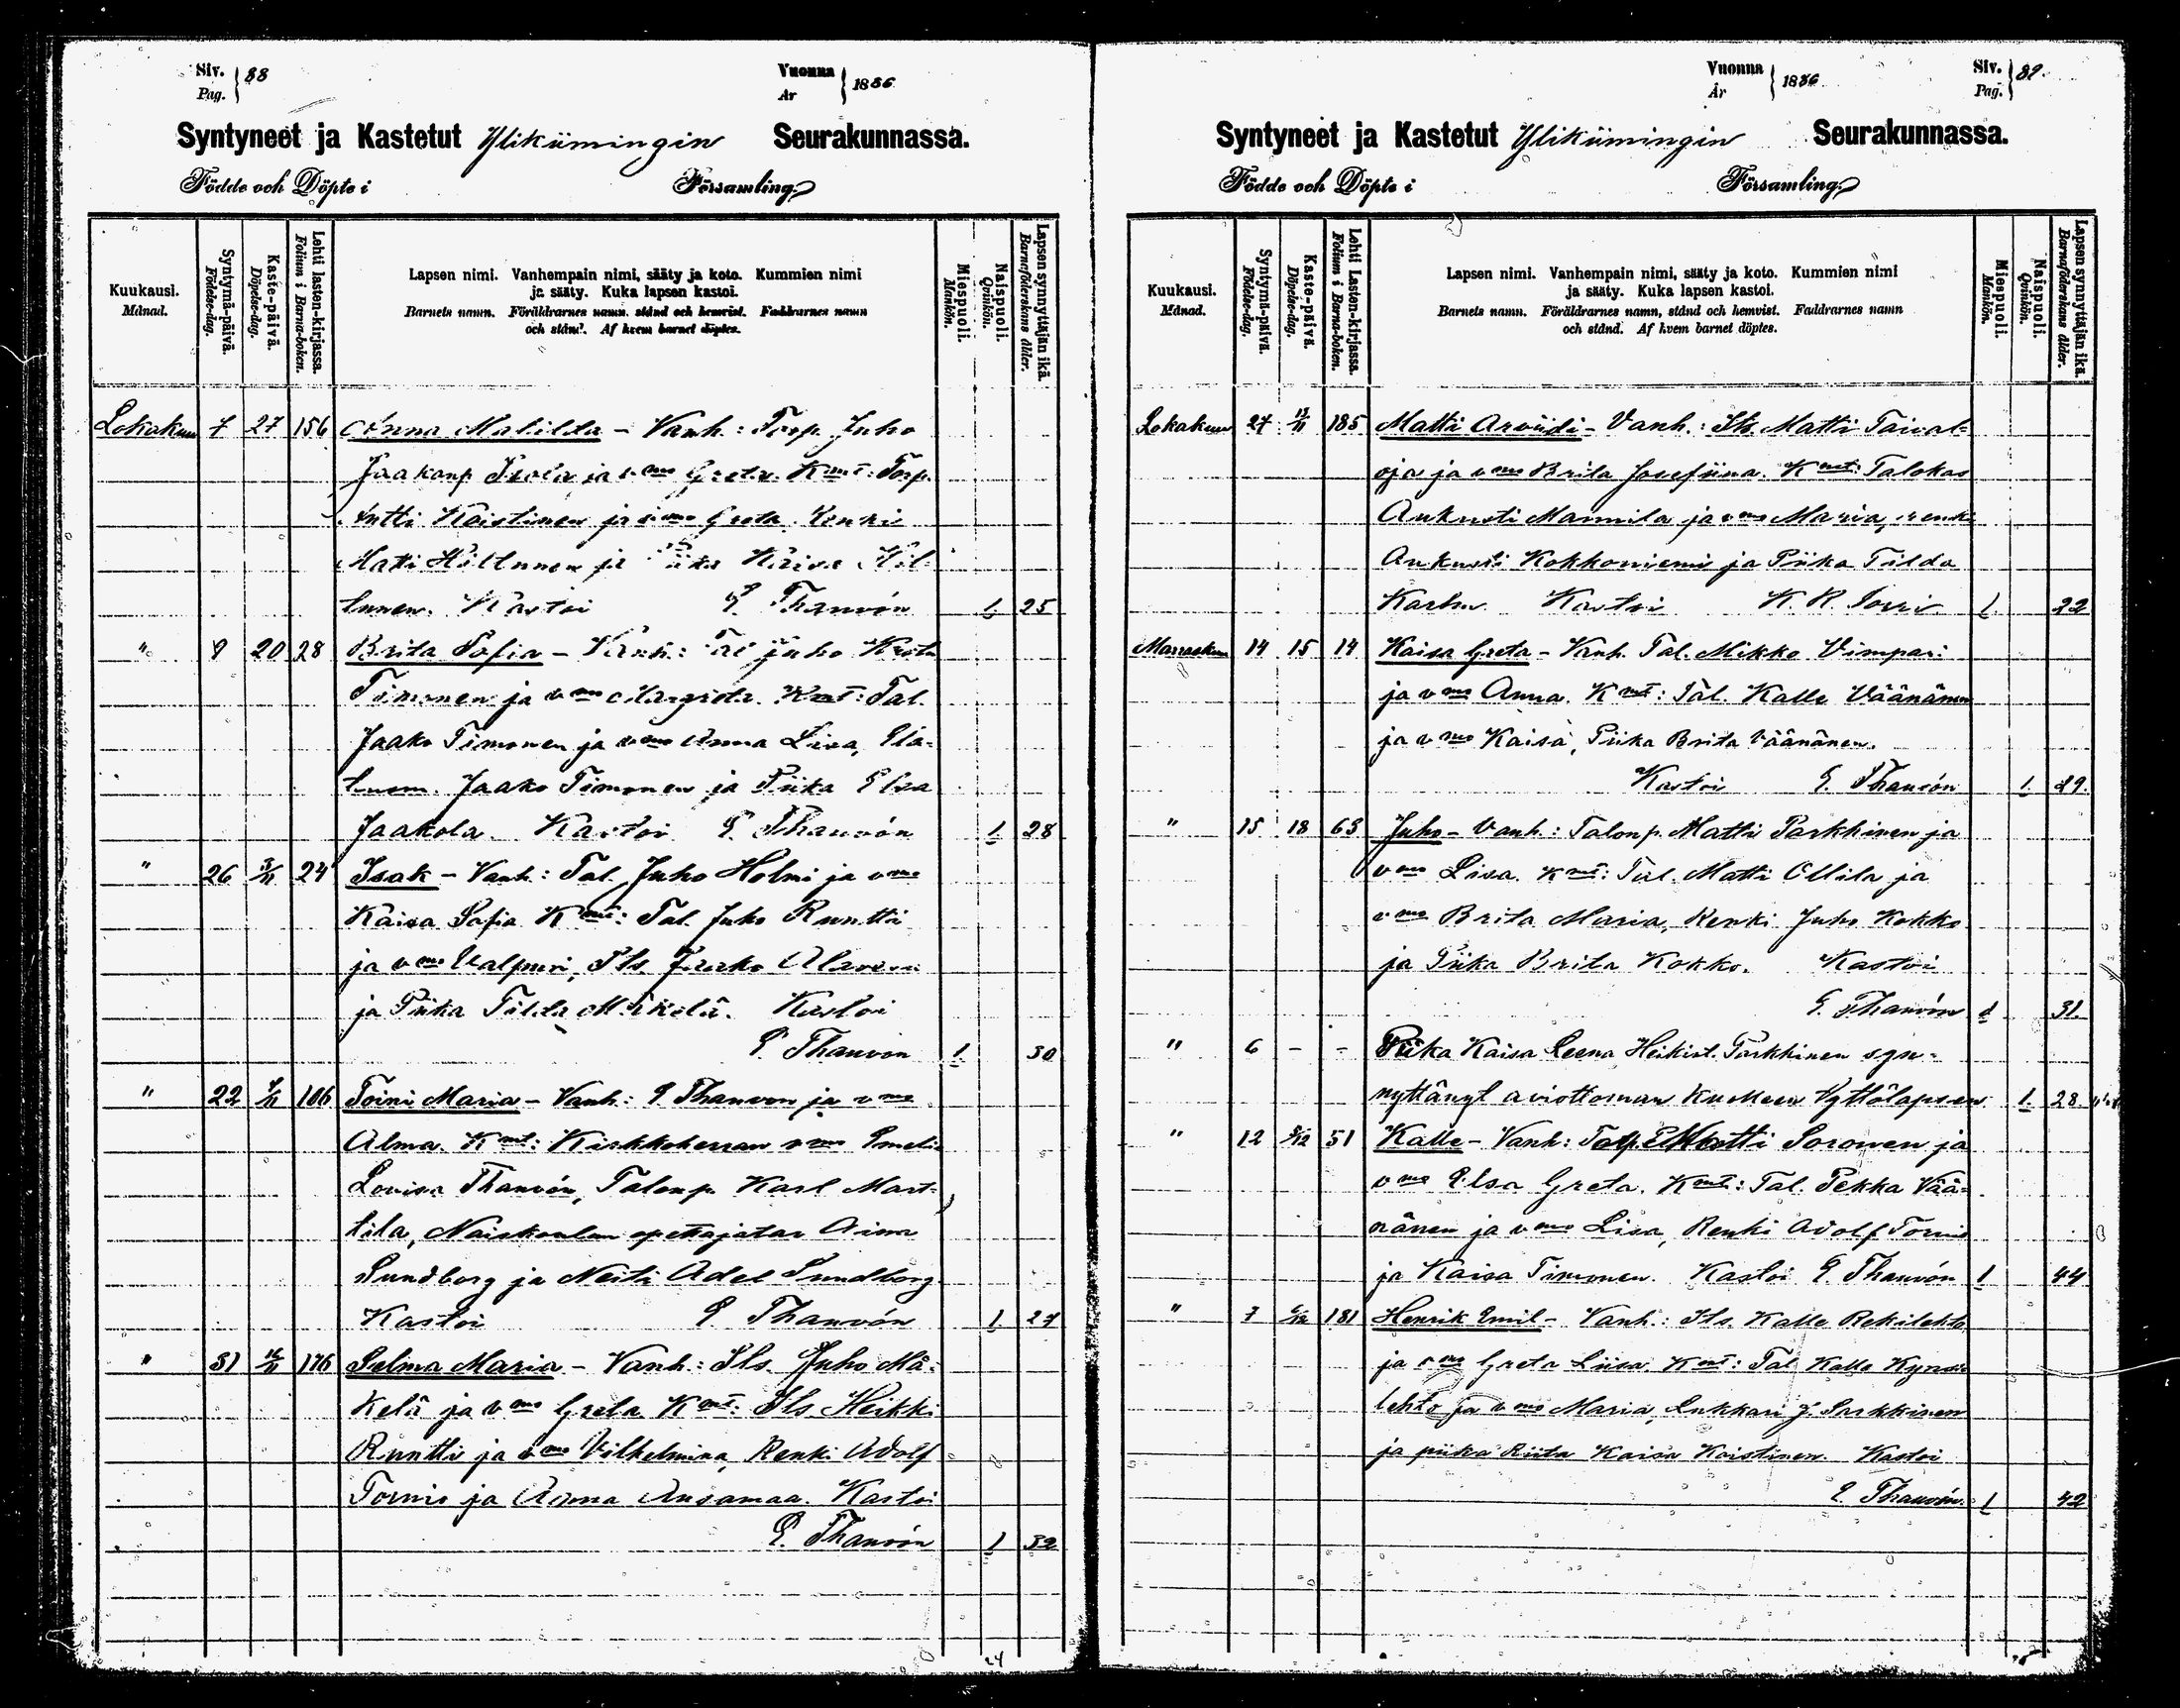 Siv. 88
Pag.
Vuonna 1886
År
Syntyneet ja Kastetut Ylikiimingin Seurakunnassa.
Födde och Döpte i Församling.
Kuukausi.
Månad.
Syntymä-päivä.
Födelse-dag.
Kaste-päivä.
Döpelse-dag.
Lehti lasten-kirjassa.
Folium i Barna-boken.
Lapsen nimi. Vanhempain nimi, sääty ja koto. Kummien nimi
ja sääty. Kuka lapsen kastoi.
Barnets namn. Föräldrarnes namn, stånd och hemvist. Faddrarnes namn
och stånd. Af hvem barnet döptes.
Miespuoli.
Mankön.
Naispuoli.
Qvinkön.
Lapsen synnyttäjän ikä.
Barnaföderskans ålder.
Lokakuu 7 27 156 Anna Matilda - Vanh.: Torp. Juho
Jaakonp ja vmo Greta. Kmt: Torp.
Antti Koistinen ja vmo Greta, Renki
Matti Hiltunen ja Piika Kaisa Hil-
tunen. Kastoi E. Thauvón 1 25
" 20 28 Brita Sofia - Vanh: Tal Juho
Timonen ja vmo Margreta. Kmt: Tal.
Jaako Timonen ja vmo Anna Lisa,
Jaako Timonen ja Piika Elsa
Jaakola. Kastoi E. Thauvón 1 28
" 26 3/11 24 Isak - Vanh: Tal. Juho Holmi ja vmo
Kaisa Sofia Kmt: Tal. Juho Runtti
ja vmo Valpuri, Its. Jaako
ja Piika Tilda Mäkelä. Kastoi
E. Thauvón 1 30
" 22 106 Toini Maria - Vanh: E. Thauvon ja vmo
Alma. Kmt: Kirkkoherran vmo Emeli
Lovisa Thauvón, Talonp. Karl Mart-
tila, Naiskoulun opettajatar Aina
Sundborg ja Neiti Adel Sundborg
Kastoi E. Thauvón 1 27
" 31 176 Selma Maria - Vanh: Its. Juho Mä-
kelä ja vmo Greta Kmt: Its Heikki
Runtti ja vmo Vilhelmina, Renki Adolf
Tornio ja Anna Ansamaa. Kastoi
E. Thauvón 1 32
24
Vuonna 1886
År
Siv. 89.
Pag.
Syntyneet ja Kastetut Ylikiimingin Seurakunnassa.
Födde och Döpte i Församling.
Kuukausi.
Månad.
Syntymä-päivä.
Födelse-dag.
Kaste-päivä.
Döpelse-dag.
Lehti Lasten-kirjassa.
Folium i Barna-boken.
Lapsen nimi. Vanhempain nimi, sääty ja koto. Kummien nimi
ja sääty. Kuka lapsen kastoi.
Barnets namn. Föräldrarnes namn, stånd och hemvist. Faddrarnes namn
och stånd. Af hvem barnet döptes.
Miespuoli.
Mankön.
Naispuoli.
Qvinkön.
Lapsen synnyttäjän ikä.
Barnaföderskans ålder.
Lokakuu 27 13/11 185 Matti Arviidi - Vanh.: Its. Matti Taival-
oja ja vmo Brita Josefiina. Kmt: Talokas
Aukusti Mannila ja vmo Maria, renki
Aukusti Kokkoniemi ja Piika Tilda
Kastoi 1 22
Marraskuu 14 15 14 Kaisa Greta - Vanh. Tal. Mikko Vimpari
ja vmo Anna. Kmt: Tal. Kalle Väänänen
ja vmo Kaisa, Piika Brita Väänänen.
Kastoi E. Thauvón 1 29
" 15 18 63 Juho - Vanh.: Talonp. Matti Parkkinen ja
vmo Lisa. Kmt: Tal. Matti Ollila ja
vmo Brita Maria, Renki Juho Kokko
ja Piika Brita Kokko. Kastoi
E. Thauvón 1 31
" 6 - - Piika Kaisa Leena Heikint. Parkkinen syn-
nyttänyt aviottoman kuolleen tyttölapsen. 1 28
" 12 5/12 51 Kalle - Vanh: Matti Soronen ja
vmo Elsa Greta. Kmt: Tal. Pekka Vää-
nänen ja vmo Lisa, Renki Adolf Tornio
ja Kaisa Timonen. Kastoi E. Thauvón 1 44
" 7 181 Henrik Emil - Vanh.: Its. Kalle Rekilehto
ja vmo Greta Liisa. Kmt: Tal Kalle
lehto ja vmo Maria, Lukkari J. Parkkinen
ja piika Riita Kaisa Koistinen. Kastoi
E. Thauvón. 1 42